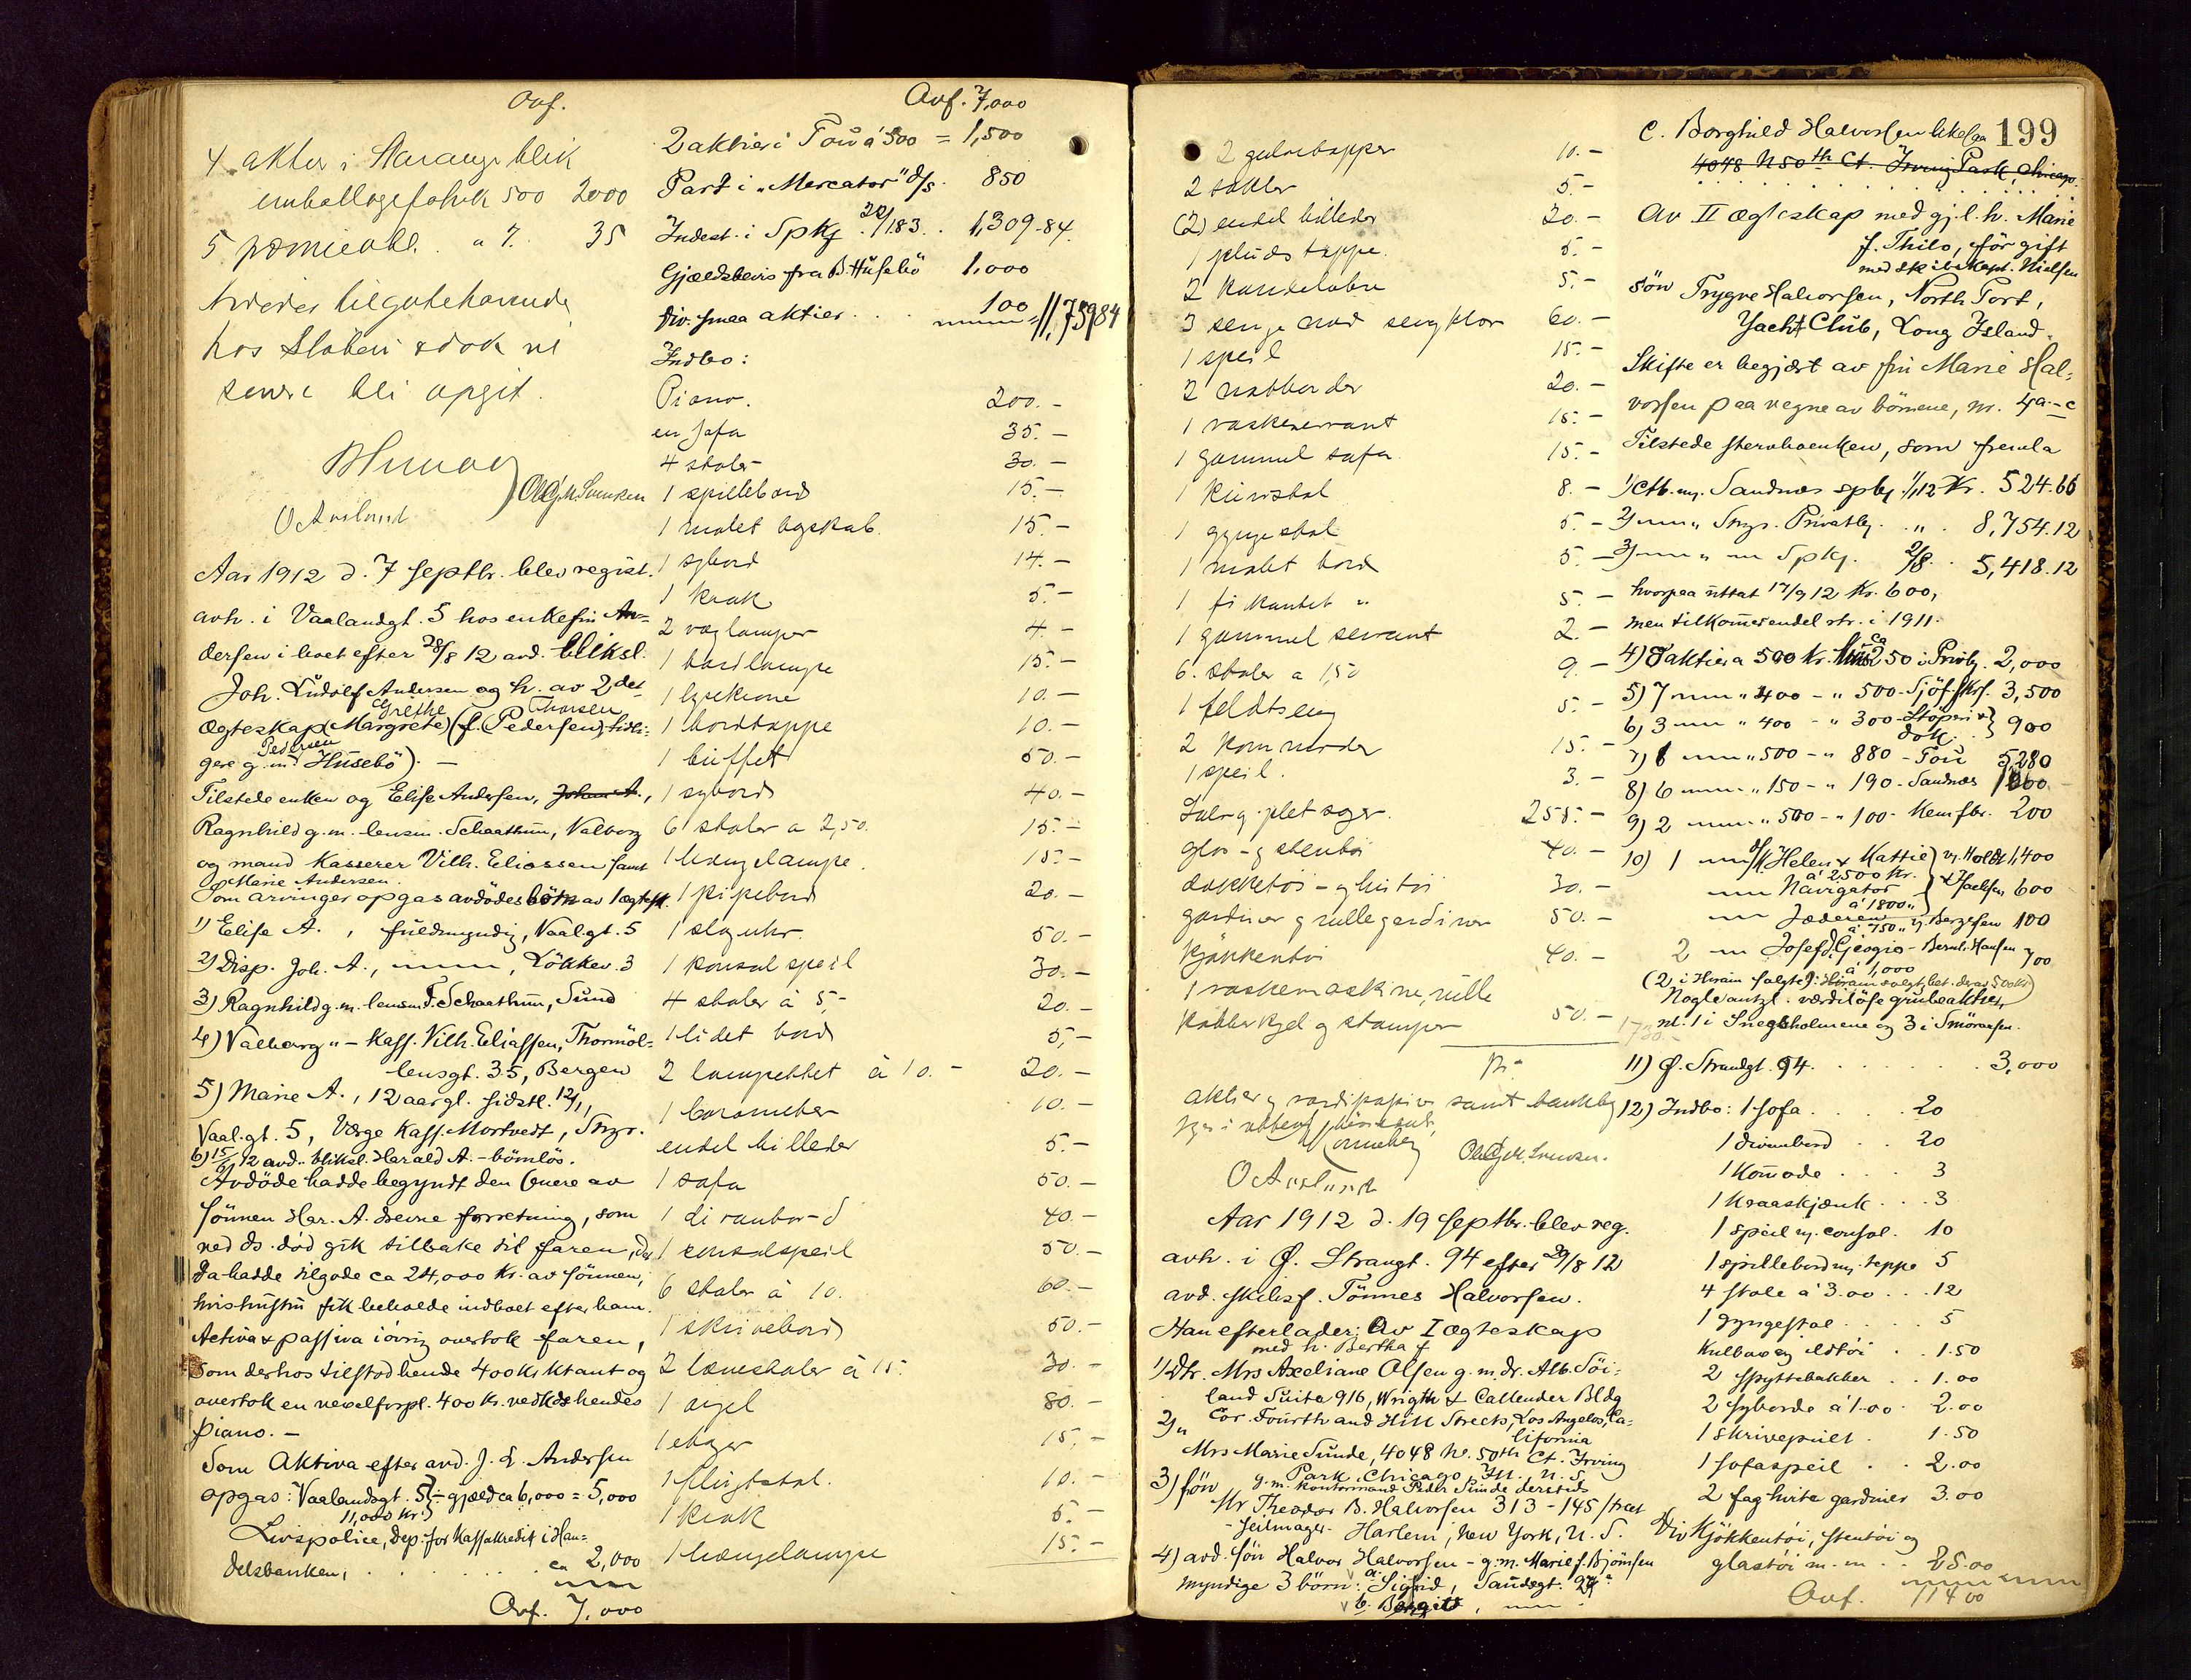 Ovf.
4 aktier i Stavanger blik
emballagefabrik 500 2000
5 præmieobl. a 7. 35
hos Støberi & dok vil
senere bli opgit.
O Aasland
Aar 1912 d. 7 septbr. blev regist.
avh. i Vaalandgt. 5 hos enkefru An-
dersen i boet efter 28/8 12 avd. bliksl.
Joh. Ludolf Andersen og h. av 2det
Grethe Thorsen
Ægteskap (Margrete) (f. Pedersen, tidli-
Pedersen
gere g. m. Husebö). —
Tilstede enken og Elise Andersen, Johan A.,
Ragnhild g. m. lensm. Schaathun, Valborg
og mand Kasserer Vilh. Eliassen samt
Marie Andersen.
Som arvinger opgas avdödes börn av 1 ægtesk.
1) Elise A., fuldmyndig, Vaal.gt. 5
2) Disp. Joh. A., Lökkev. 3
3) Ragnhild g. m. lensmd. T. Schaathun, Sund
4) Valborg " - Kass. Vilh. Eliassen, Thormöl-
lensgt. 35, Bergen
5) Marie A., 12 aar gl. sidstl. 12/1,
Vaal.gt. 5, Værge Kass. Mortvedt, Stvgr.
6) 15/6 12 avd. bliksl. Harald A. - börnlös.
Avdöde hadde begyndt den senere av
sönnen Har. A. drevne forretning, som
ved ds. död gik tilbake til faren, der
da hadde tilgode ca 24,000 Kr. av sönnen,
hvis hustru fik beholde indboet efter ham.
Activa & passiva iövrig overtok faren,
som derhos tilstod hende 400 Kr. ktant og
overtok en vexelforpl. 400 Kr. vedk. hendes
piano. —
Som Aktiva efter avd. J. L. Andersen
opgas: Vaalandsgt. 5 ÷ gjæld ca 6,000 = 5,000
11,000 Kr.
Livspolice, dep. for Kassakredit i Han-
delsbanken, . . . . ca 2,000
Ovf. 7,000
Ovf. 7,000
2 aktier i Tou á 500 = 1,500
Part i "Mercator" d/s. 850
Indest. i Spkg. 1,309.84.
Gjældsbevis fra B. Husebö 1,000
Div. smaa aktier . . . 100 = 11,759 84
Indbo:
Piano. 200.-
en sofa 35.-
4 stoler 30.-
1 spillebord 15.-
1 malet bogskab 15.-
1 sybord 14.-
1 krak 5.-
2 væglamper 4.-
1 bordlampe 15.-
1 lysekrone 10.-
1 bordtæppe 10.-
1 buffet 50.-
1 sybord 40.-
6 stoler a 2,50. 15.-
1 hængelampe. 15.-
1 pipebord 20.-
1 slaguhr. 50.-
1 konsolspeil 30.-
4 stoler à 5,- 20.-
1 lidet bord 5,-
2 lampettet à 10.- 20.-
1 barometer 10.-
endel billeder 5.-
1 sofa 50.-
1 divanbord 40.-
1 konsolspeil 50.-
6 stoler à 10. 60.-
1 skrivebord 50.-
2 lænestoler à 15. 30.-
1 orgel 80.-
1 etager 15,-
1 hvilestol. 10.-
1 krak 5.-
1 hængelampe 15.-
199
2 gulvtæpper 10.-
2 sokler 5.-
(2) endel billeder 20.-
1 pludstæppe. 5.-
2 kandelabre 5.-
3 senge med sengklær 60.-
1 speil 15.-
2 natborder 20.-
1 vaskeservant 15.-
1 gammel sofa 15.-
1 kurvstol 8.-
1 gyngestol 5.-
1 malet bord 5.-
1 firkantet " 5.-
1 gammel servant 2.-
6 stoler a 1,50 9.-
1 feldtseng 5.-
2 kommoder 15.-
1 speil. 3.-
Sølv og pletsager. 255.-
glas- og stentøi 40.-
dækketøi - 30.-
gardiner og rullegardiner 50.-
Kjøkkentøi 40.-
1 vaskemaskine, rulle
kobberkjel og stamper 50.-
aktier og værdipapirer samt bankbog
O Aasland
Aar 1912 d. 19 septbr. blev reg.
avh. i Ø. Strangt. 94 efter 29/8 12
avd. skibsf. Tönnes Halvorsen.
Han efterlader: Av I ægteskap
med h. Bertha f.
1) Dtr. Mrs Axeliane Olsen g. m. dr. Alb. Söi-
land Suite 916, Wrigth & Callender Bldg
Cor. Fourth and Hill Streets, Los Angelos, Ca-
lifornia
2) " Mrs Marie Sunde, 4048 N. 50th Ct. Irving
Park, Chicago, Ill. U. S.
g. m. kontormand Peder Sunde dersteds
3) sön Mr Theodor B. Halvorsen 313 - 145 street
- seilmager - Harlem, New York, U. S.
4) avd. sön Halvor Halvorsen - g. m. Marie f. Bjönnsen
myndige 3 börn: a. Sigrid, Sandsgt. 27
b. Borgild,
c. Borghild Halvorsen likesaa
4048 N 50th Ct. Irving Park, Chicago.
Av II ægteskap med gjl. h. Marie
f. Thilo, för gift
med skibskapt. Nielsen
sön Trygve Halvorsen, North Port,
Yacht Club, Long Island.
Skifte er begjært av fru Marie Hal-
vorsen paa vegne av börnene, nr. 4 a - c
Tilstede stervboenken, som fremla
1) Ctb. m. Sandnes spbg. 1/1 12 Kr. 524.66
2) " Stvgr. Privatbg. " 8,754.12
3) " Spkg. 2/8. 5,418.12
hvorpaa uttat 17/9 12 Kr. 600,
men tilkommer endel rtr. i 1911.
4) 8 aktier a 500 Kr. ca 250 i Privbg. 2,000
5) 7 " 400 - " 500 - Sjöf. 3,500
6) 3 " 400 - " 300 - Støperi & dok. 900
7) 6 " 500 - " 880 - Tou 5,280
8) 6 " 150 - " 190 - Sandnes
9) 2 " 500 - " 100 - Hermfbr. 200
10) 1 d/s Helen & Kattie v. Holdt 1,400
à 2500 Kr.
Navigator & Jacobsen 600
à 1800 "
Jæderen v. Bergesen 100
à 750 "
2 Josef di Giorgio - Bernh. Hansen 700
à 1,000
Nogle antgl. værdilöse grubeaktier,
nl. 1 i Snegholmene og 3 i Smöraasen.
11) Ø. Strandgt. 94. . . . . 3,000
12) Indbo: 1 sofa . . . . 20
1 divanbord . . 20
1 Komode . . . 3
1 Kraaskjænk . . . 3
1 speil m. consol. 10
1 spillebord m. teppe 5
4 stole á 3.00 . . . 12
1 gyngestol . . . . 5
Kulbox og ildtöi . . 1.50
2 spyttebakker . . 1.00
2 syborde á 1.00 . 2.00
1 skrivepult . 1.50
1 sofaspeil . . 2.00
2 fag hvite gardiner 3.00
Div Kjökkentöi, stentöi og
glastöi m. m. . . 25.00
Ovf. 114 00